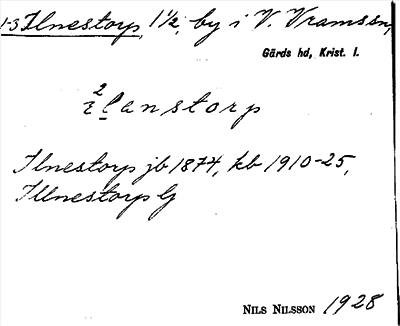 1-3 Ilnestorp, 1 1/2, by i V. Vramssn,
Gärds hd, Krist. l.
2
ɩlanstorp
Ilnestorp jb 1874, kb 1910-25,
Illnestorp G
NILS NILSSON 1928